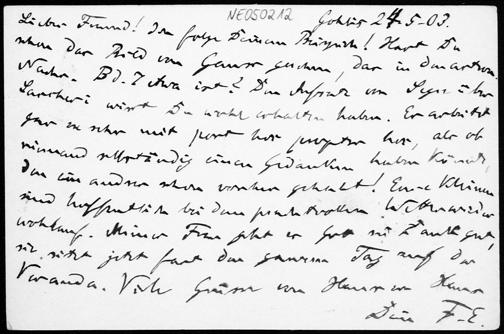 NE050212
Gohlis 24-5-03.
Lieber Freund! Ich folge Deinem Beispiel! Hast Du
schon das Bild von Gauss gesehen, das in dem
Nachr. Bd. 7 ist? Den Aufsatz von Segre über
Saccheri wirst Du wohl erhalten haben. Er arbeitet
gar zu sehr mit post hoc propter hoc, als ob
niemand selbständig einen Gedanken haben könnte,
den ein andrer schon vorher gehabt! Eure Kleinen
sind hoffentlich bei dem prachtvollen Wetter wieder
wohlauf. Meiner Frau geht es Gott sei Dank gut,
sie sitzt jetzt fast den ganzen Tag auf der
Veranda. Viele Grüsse von Haus zu Haus
Dein F. E.